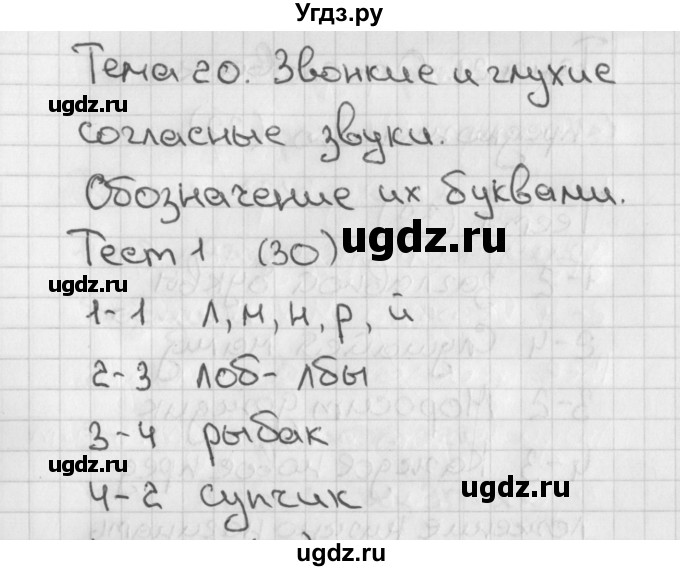 Угдз.ру
Тема 20. Звонкие и глухие
ugdz.ru
согласные звуки.
Обозначение их буквами.
ugdz.ru
Тест 1 (30)
ugdz.ru
1-1 л, м, н, р, й
2-3 лоб - лбы
3-4 рыбак
ugdz.ru
4-2 супчик
ugdz.ru
ugdz.ru